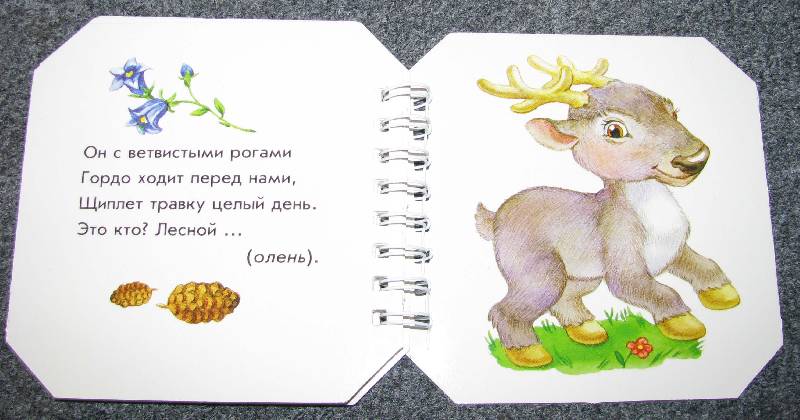 Он с ветвистыми рогами
Гордо ходит перед нами,
Щиплет травку целый день.
Это кто? Лесной ...
(олень).